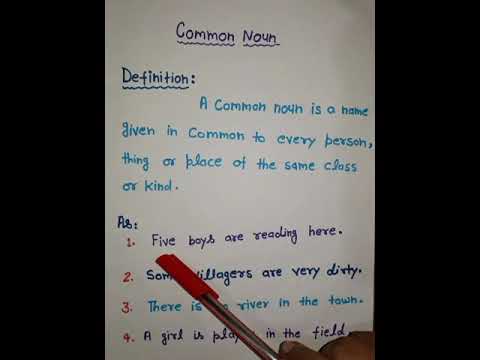 Common Noun
Definition:
A Common noun is a name
given in Common to every person,
thing or place of the same class
or kind.
As:
1. Five boys are reading here.
2. Some villagers are very dirty.
3. There is river in the town.
4. A girl is in the field.